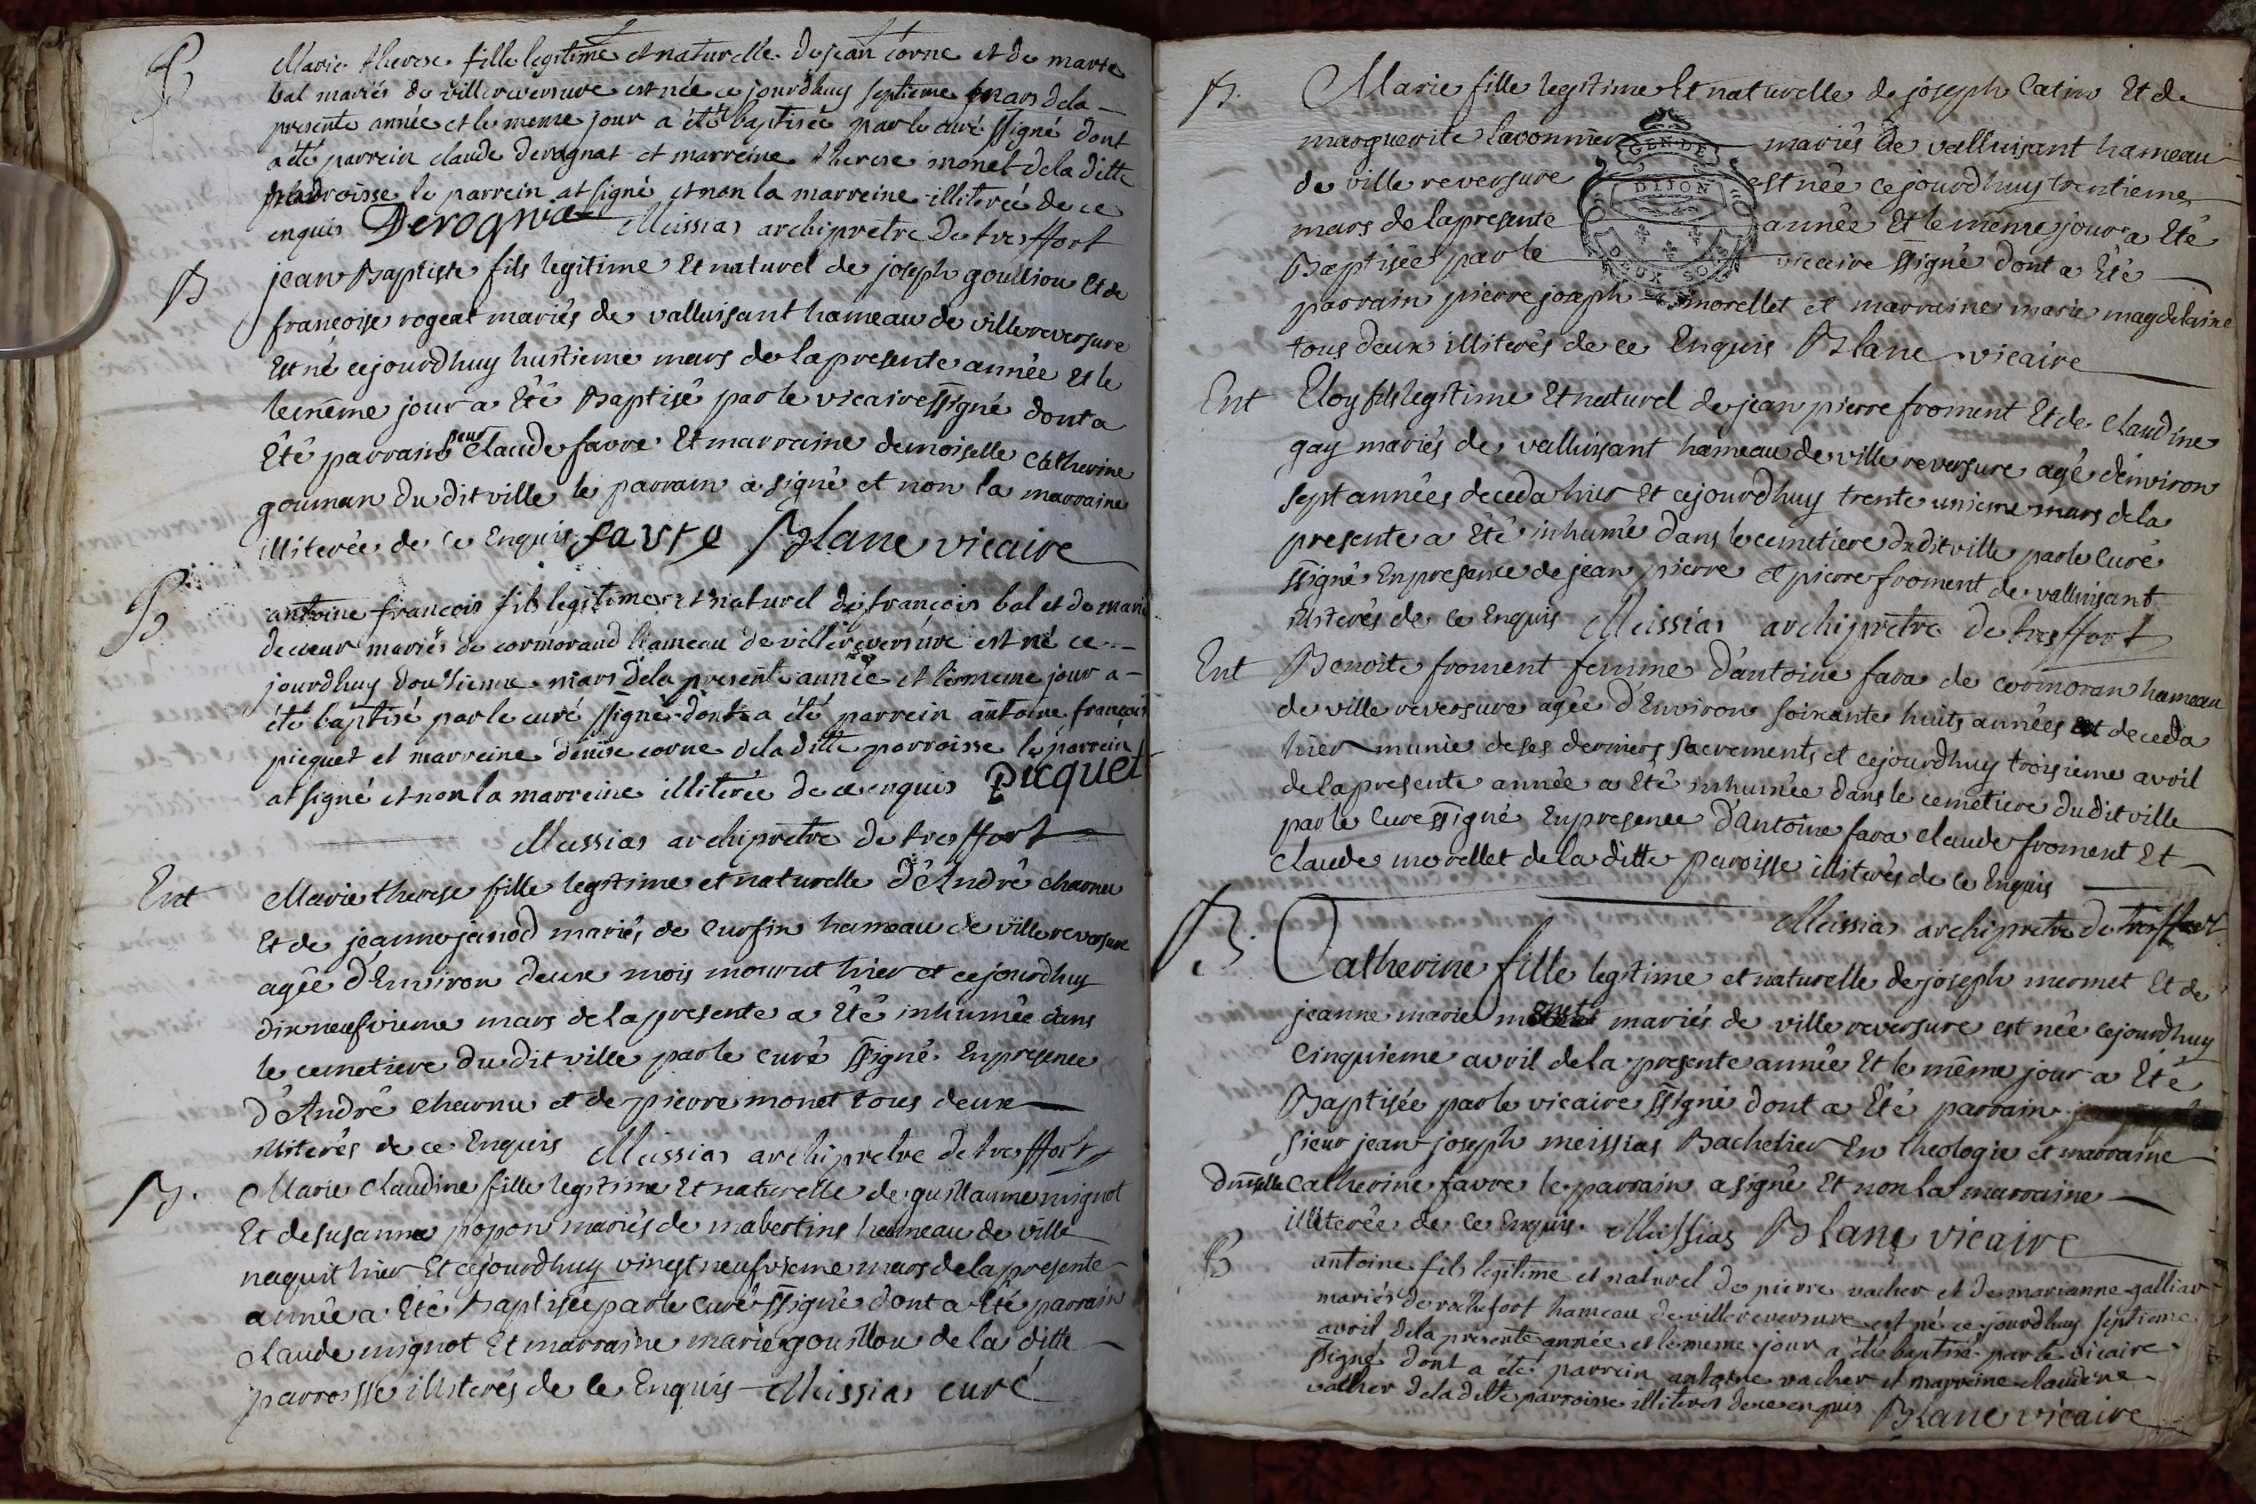 B
Marie therese fille legitime et naturelle de jean corne et de marie
bal mariés de villereversure est née ce jourdhuy septieme mars dela
presente année et le meme jour a été baptisée par le curé ssigné dont
a été parrein claude derognat et marreine therese monet dela ditte
parroisse le parrein at signé et non la marreine illiterée de ce
enquis Derognat Meissias archipretre de tresffort
B
jean Baptiste fils legitime Et naturel de joseph goullion Et de
francoise rogeat mariés de valluisant hameau de villereversure
Est né cejourdhuy huitieme mars de lapresente année et le
le même jour a Eté Baptisé par le vicaire ssigné dont a
Eté parrain sieur Claude favre Et marraine demoiselle Catherine
gouman du dit ville le parrain a signé et non la marraine
illiterée de ce Enquis favre Blanc vicaire
B
antoine francois fils legitime et naturel de francois bal et de marie
decoeur mariés de cormorand hameau de villereversure est né ce
jourdhuy douzieme mars dela presente année et le meme jour a
été baptisé par le curé ssigné dont a été parrein antoine françois
picquet et marreine denise corne dela ditte parroisse le parrein
at signé et non la marreine illiterée de ce enquis Picquet
Meissias archipretre de tresffort
Ent
Marie therese fille legitime et naturelle d'André charnu
Et de jeanne janod mariés de Cursin hameau de villereversure
agée d'Environ deux mois mourut hier et cejourdhuy
dixneufvieme mars de lapresente a Eté inhumée dans
le cemetiere du dit ville par le curé ssigné En presence
d'André charnu et de pierre monet tous deux
illiterés de ce Enquis Meissias archipretre de tresffort
B.
Marie Claudine fille legitime Et naturelle de guillaume mignot
Et de susanne popon mariés de mabertins hameau de ville
naquit hier Et cejourdhuy vingt neufvieme mars de lapresente
année a Eté baptisée par le curé ssigné dont a Eté parrain
claude mignot Et marraine marie gouillou de la ditte
parroisse illiterés de ce Enquis Meissias curé
B.
Marie fille legitime Et naturelle de joseph Catin Et de
marguerite lavonnier mariés de valluisant hameau
GEN DE
DIJON
DEUX SOLS
de ville reversure est née cejourdhuy trentieme
mars de lapresente année Et le même jour a Eté
Baptisée par le vicaire ssigné dont a Eté
parrain pierre joseph morellet et marraine marie magdelaine
tous deux illiterés de ce Enquis Blanc vicaire
Ent
Eloy fils legitime Et naturel de jean pierre froment Et de Claudine
gay mariés de valluisant hameau de ville reversure agé d'environ
sept années deceda hier Et cejourdhuy trente unieme mars dela
presente a Eté inhumé dans le cemetiere du dit ville par le Curé
ssigné En presence de jean pierre et pierre froment de valluisant
illiterés de ce Enquis Meissias archipretre de tresffort
Ent
Benoite froment femme d'antoine fara de cormoran hameau
de ville reversure agée d'Environ soixante huits années deceda
hier munie de ses derniers sacrements et cejourdhuy troisieme avril
de lapresente année a Eté inhumée dans le cemetiere du dit ville
par le Curé ssigné En presence d'Antoine fara claude froment Et
Claude morellet de la ditte paroisse illiterés de ce Enquis
Meissias archipretre de tresffort
B.
Catherine fille legitime et naturelle de joseph mermet Et de
jeanne marie mariés de ville reversure est née cejourdhuy
Cinquieme avril de la presente année Et le même jour a Eté
Baptisée par le vicaire ssigné dont a Eté parrain
sieur jean joseph meissias Bachelier En theologie et marraine
dmlle Catherine favre le parrain a signé Et non la marraine
illiterée de ce Enquis Meissias Blanc vicaire
B
antoine fils legitime et naturel de pierre vacher et de marianne
mariés de rochefort hameau de villereversure est né ce jourdhuy septieme
avril dela presente année et le meme jour a été baptisé par le vicaire
ssigné dont a été parrein antoine vacher et marreine claudine
vacher dela ditte parroisse illiterés de ce enquis Blanc vicaire